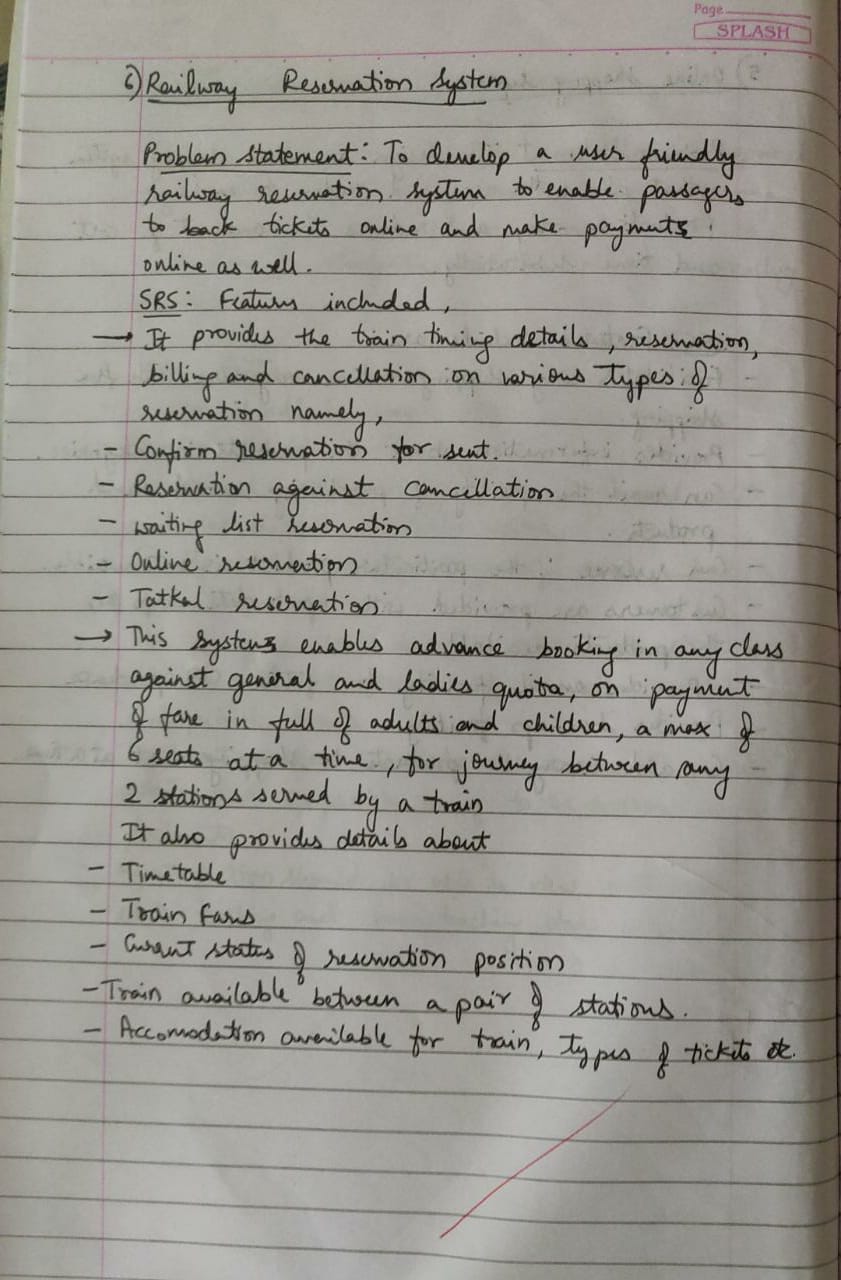 Page
SPLASH
6) Railway Reservation System
Problem statement: To develop a user friendly
railway reservation system to enable passagers
to back tickets online and make payments
online as well.
SRS: Features included,
→ It provides the train timing details, reservation,
billing and cancellation on various types of
reservation namely,
- Confirm reservation for seat.
- Reservation against cancellation
- waiting list reservation
- Online reservation
- Tatkal reservation
→ This system enables advance booking in any class
against general and ladies quota, on payment
of fare in full of adults and children, a max of
6 seats at a time, for journey between any
2 stations served by a train
It also provides details about
- Timetable
- Train Fares
- Current status of reservation position
- Train available between a pair of stations.
- Accomodation available for train, types of tickets etc.